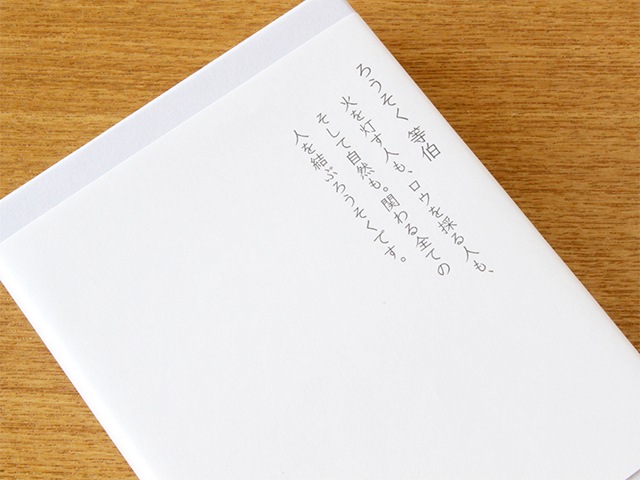 ろうそく 等伯
火を灯す人も、ロウを採る人も、
そして自然も。関わる全ての
人を結ぶろうそくです。